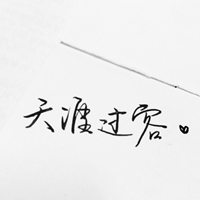 天涯过客。